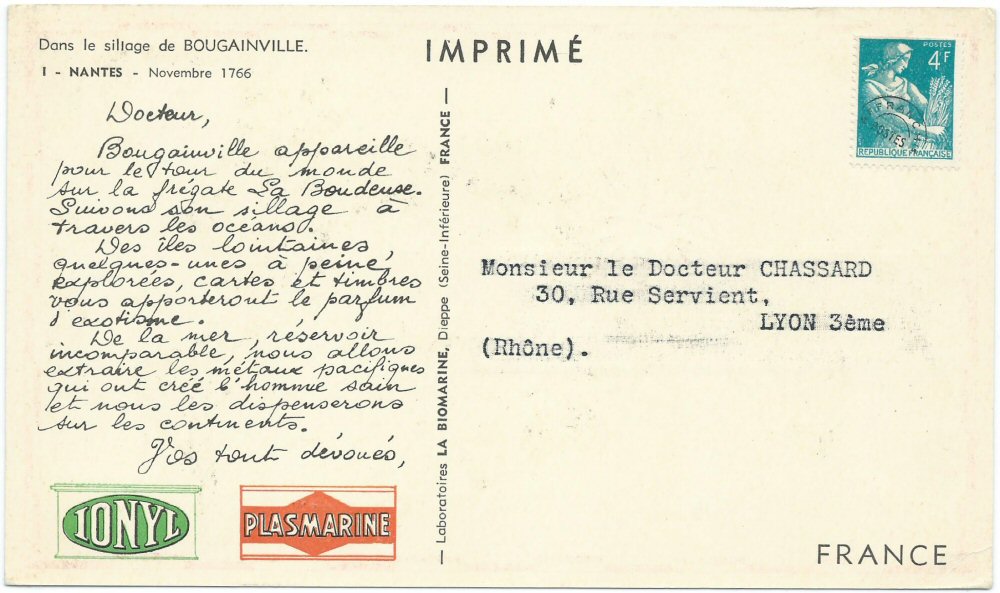 Dans le sillage de BOUGAINVILLE.
I - NANTES - Novembre 1766
IMPRIMÉ
POSTES
4F
FRANCE
POSTES
RÉPUBLIQUE FRANÇAISE
Docteur,
Bougainville appareille
pour le tour du monde
sur la frégate La Boudeuse.
Suivons son sillage à
travers les océans.
Des îles lointaines,
quelques-unes à peine
explorées, cartes et timbres
vous apporteront le parfum
d'exotisme.
De la mer, réservoir
incomparable, nous allons
extraire les métaux pacifiques
qui ont créé l'homme sain
et nous les dispenserons
sur les continents.
Vos tout dévoués,
IONYL
PLASMARINE
— Laboratoires LA BIOMARINE, Dieppe (Seine-Inférieure) FRANCE —
Monsieur le Docteur CHASSARD
30, Rue Servient,
LYON 3ème
(Rhône).
FRANCE